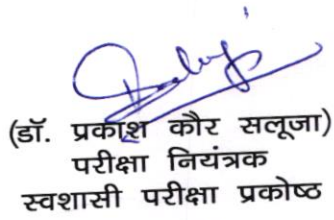 (डॉ. प्रकाश कौर सलूजा)
परीक्षा नियंत्रक
स्वशासी परीक्षा प्रकोष्ठ